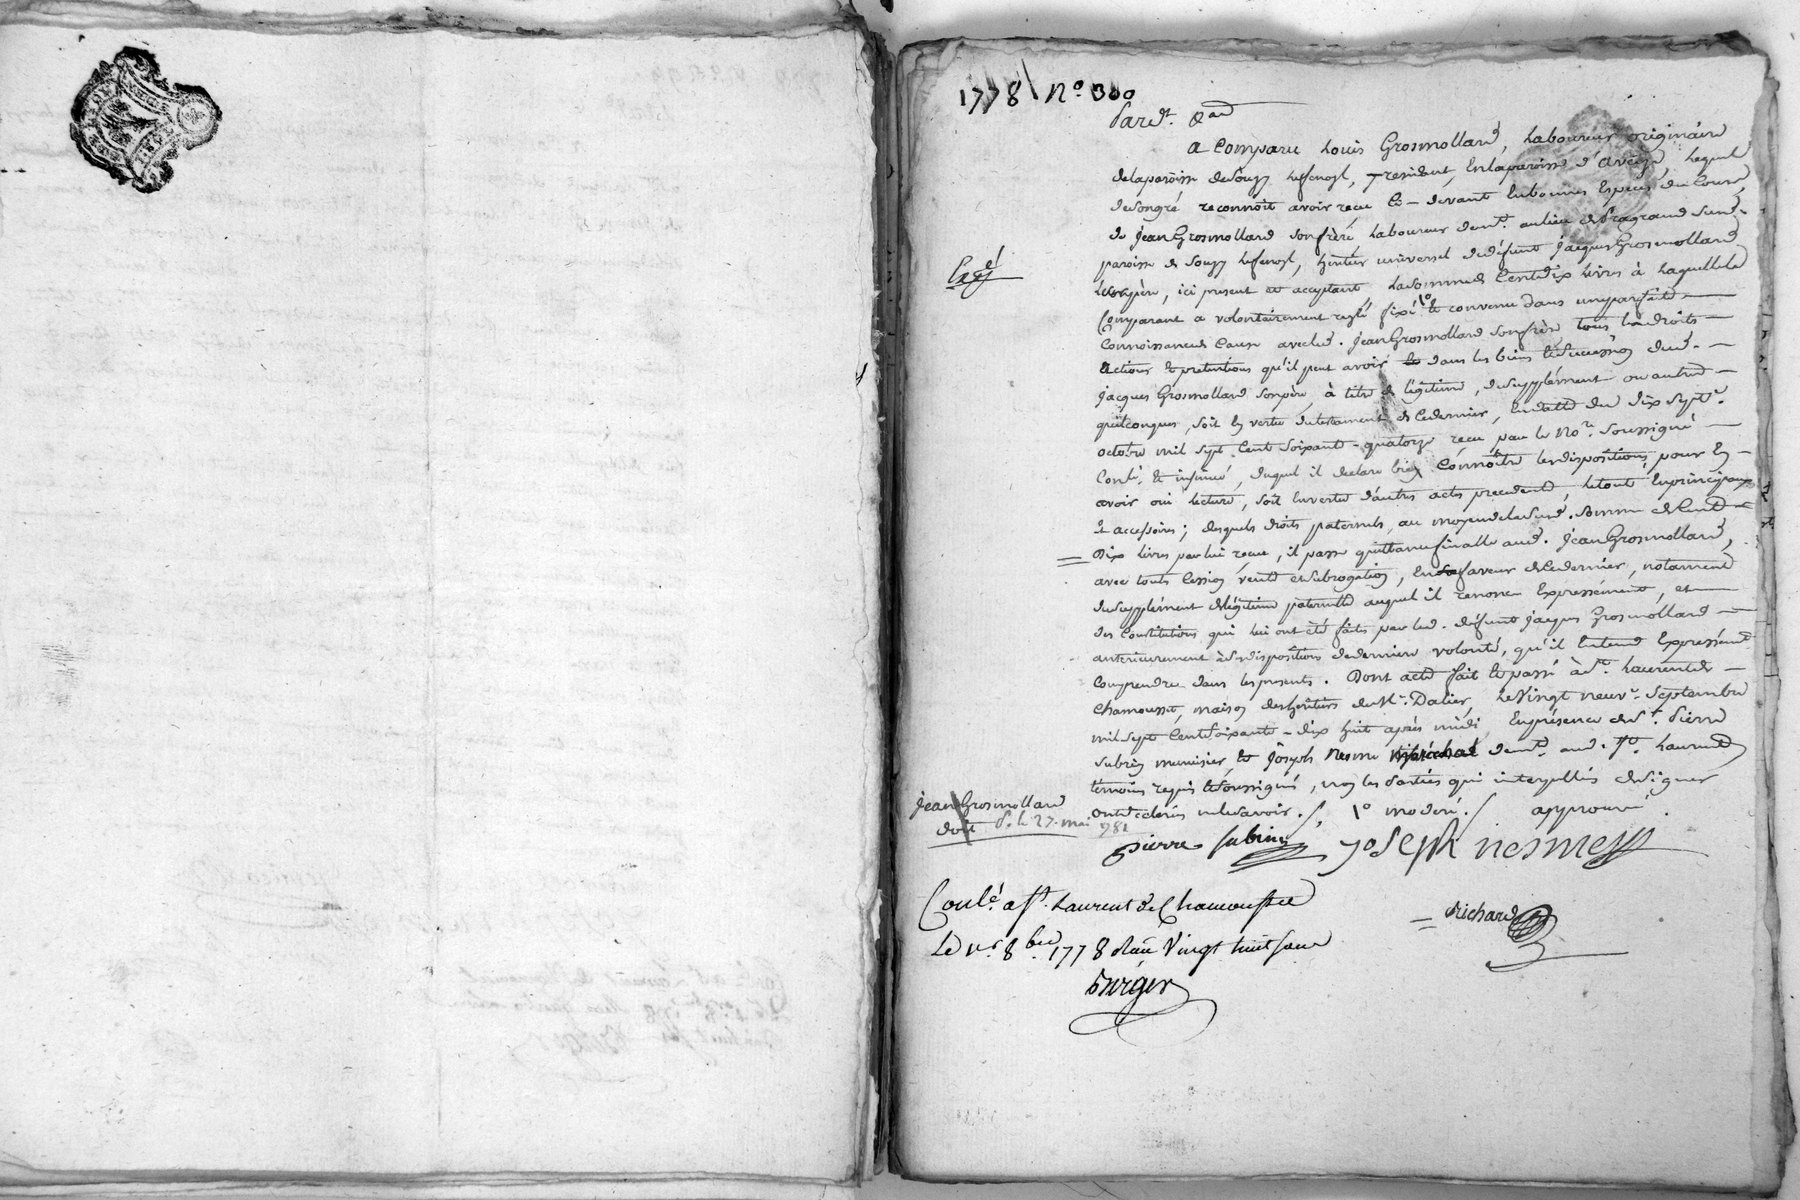 1778 No. 300
Pardt. &ad
a Comparu Louis Grosmollard, Laboureur originaire
delaparoisse deSouzy Lefenosl, residant, Enlaparoisse d'aveize, Lequel
desongré reconnoit avoir recu Cy-devant Enbonnes Especes du Cours,
de Jean Grosmollard sonfrère Laboureur demt. aulieu de Pragrand susd.
paroisse de Souzy Lefenosl, heritier universel dedéfunt Jacques Grosmollard
Leurpère, ici present et acceptant Lasomme de Centdix Livres à Laquelle le
Exgé
Comparant a volontairement reglé fixé 1o et convenu dans uneparfaite
Connoissance de Cause avecled. Jean Grosmollard sonfrère tous les droits
actions et pretentions qu'il peut avoir dans les biens etSuccession dud.
Jacques Grosmollard sonpère, à titre de légitime, de supplément ou autres
quelconques, soit En vertu dutestament de Cedernier, Endatte du dix sept
octobre mil sept Cent soixante-quatorze recu par le Nore. soussigné
Contlé. et insinué, duquel il declare bien Connoitre lesdispositions pour En
avoir oui Lecture, soit Envertu d'autres actes precedents, Letout Enprincipaux
et accessoires; desquels droits paternels, au moyen de lasusd. Somme de Cent
Dix Livres par lui recue, il passe quittance finalle aud. Jean Grosmollard,
avec toute Cession vente etsubrogation, En faveur de Cedernier, notament
dusupplément de légitime paternelle auquel il renonce Expressément, et
des Constitutions qui lui ont été faites par led. défunt Jacques Grosmollard
anterieurement à ses dispositions dederniere volonté, qu'il Entend Expressément
Comprendre dans les presents. Dont acte fait et passé à St. Laurent de
Chamousset, maison desheritiers du Sr. Dalier, Le Vingt neuve. Septembre
mil sept Centsoixante-dix huit après midi Enprésence de Sr. Pierre
Subrin menuisier et Joseph Nesme maréchal demt. aud. St. Laurent
temoins requis et soussignés, non les Parties qui interpellées designer
Jean Grosmollard
doit d. le 27. mai 1781
ontdeclaré nelesavoir. 1o modéré. approuvé.
pierre subrin Joseph nesme
Contlé. a St. Laurent de Chamousset
Le 1er. 8bre. 1778 Recu Vingt huit sous
Richard
Burgin